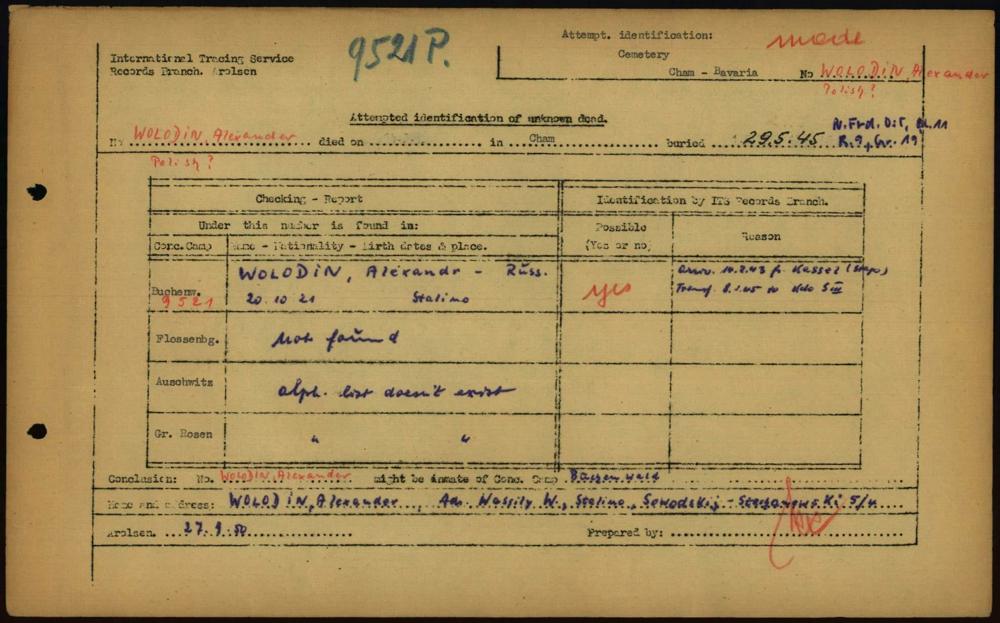 9521 P.
Attempt. identification:
made
Cemetery
International Tracing Service
Records Branch. Arolsen
Cham - Bavaria No WOLODIN, Alexander
Polish?
Attempted identification of unknown dead.
N. Frd. Oit, Bl. 11
No WOLODIN, Alexander died on in Cham buried 29.5.45 R.9, Gr. 19
Polish?
Checking - Report
Identification by ITS Records Branch.
Under this number is found in:
Possible (Yes or no)
Reason
Conc.Camp
Name - Nationality - Birth dates & place.
Buchenw. 9521
WOLODIN, Alexandr - Russ.
20.10.21 Stalino
yes
Arriv. 10.2.43 fr. Kassel (Stapo)
Transf. 8.1.45 to Kdo SIII
Flossenbg.
Not found
Auschwitz
alph. list doesn't exist
Gr. Rosen
" "
Conclusion: No. WOLODIN, Alexander might be inmate of Conc. Camp Buchenwald
Name and address: WOLODIN, Alexander Wassily W., Stalino,
Arolsen, 27.9.50 Prepared by: